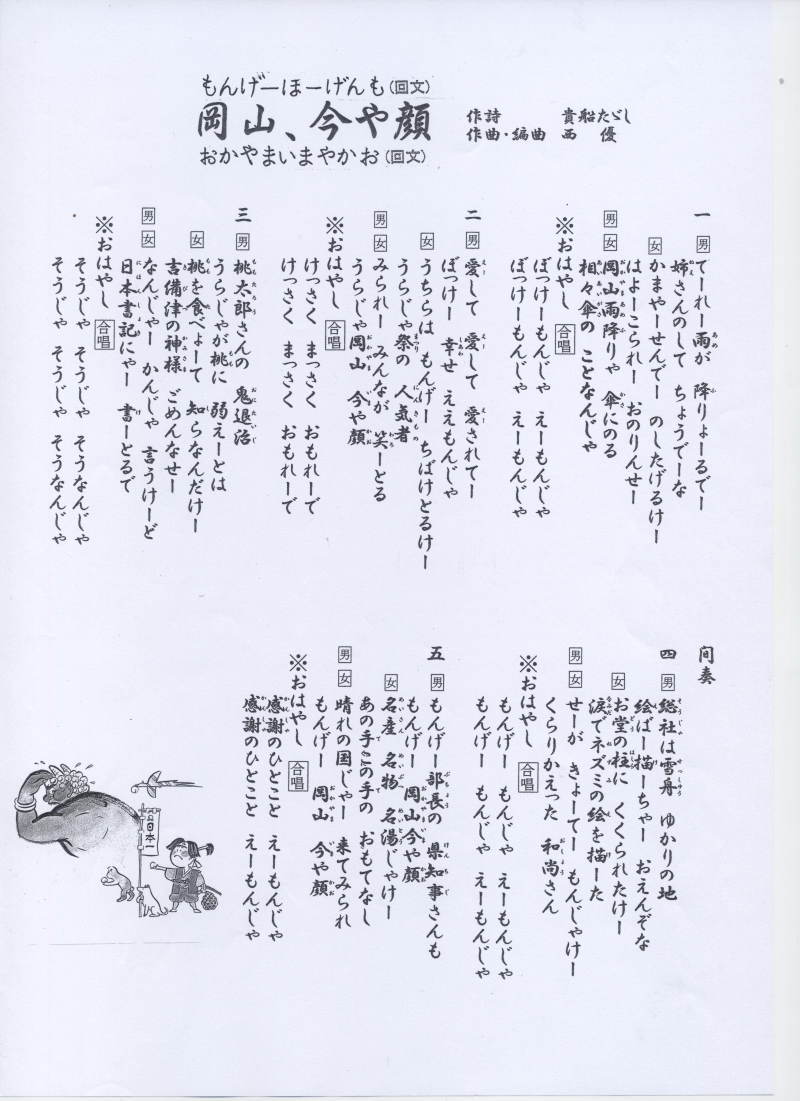 もんげーほーげんも(回文)
岡山、今や顔
おかやまいまやかお(回文)
作詩　貴船たゞし
作曲・編曲　西　優
一 男 てーれー雨が 降りょーるでー
姉さんのして ちょうでーな
女 かまやーせんでー のしたげるけー
はよーこられー おのりんせー
男 女 岡山雨降りゃ 傘にのる
相々傘の ことなんじゃ
※おはやし 合唱
ぼっけーもんじゃ えーもんじゃ
ぼっけーもんじゃ えーもんじゃ
二 男 愛して 愛して 愛されてー
ぼっけー 幸せ ええもんじゃ
女 うちらは もんげー ちばけとるけー
うらじゃ祭の 人気者
男 女 みられー みんなが 笑ーとる
うらじゃ岡山 今や顔
※おはやし 合唱
けっさく まっさく おもれーで
けっさく まっさく おもれーで
三 男 桃太郎さんの 鬼退治
うらじゃが桃に 弱えーとは
女 桃を食べよーて 知らなんだけー
吉備津の神様 ごめんなせー
男 女 なんじゃー かんじゃ 言うけーど
日本書記にゃー 書ーとるで
※おはやし 合唱
そうじゃ そうじゃ そうなんじゃ
そうじゃ そうじゃ そうなんじゃ
间奏
四 男 総社は雪舟 ゆかりの地
絵ばー描ーちゃー おえんぞな
女 お堂の柱に くくられたけー
涙でネズミの 絵を描ーた
男 女 せーが きょーてー もんじゃけー
くらりかえった 和尚さん
※おはやし 合唱
もんげー もんじゃ えーもんじゃ
もんげー もんじゃ えーもんじゃ
五 男 もんげー部長の 県知事さんも
もんげー 岡山今や顔
女 名産 名物 名湯じゃけー
あの手この手の おもてなし
男 女 晴れの国じゃー 来てみられ
もんげー 岡山 今や顔
※おはやし 合唱
感謝のひとこと えーもんじゃ
感謝のひとこと えーもんじゃ
日本一